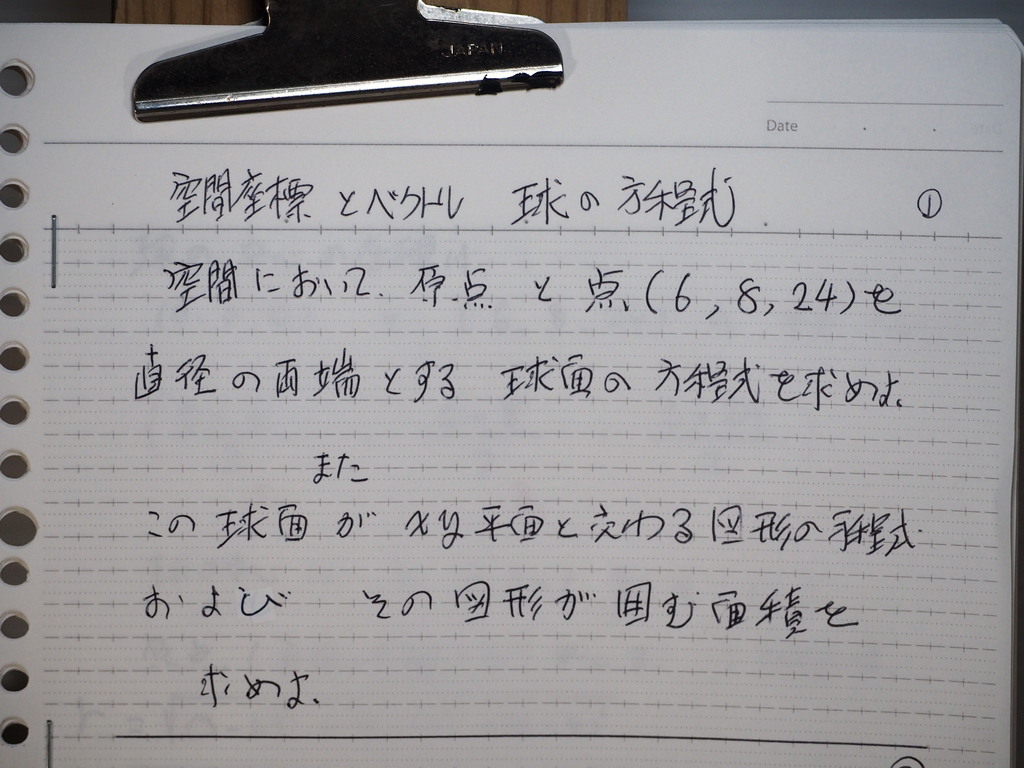 JAPAN
Date
空間座標とベクトル 球の方程式 ①
空間において、原点と点、(6,8,24)を
直径の両端とする 球面の方程式を求めよ。
また
この球面が xy平面と交わる図形の方程式
および その図形が囲む面積を
求めよ。